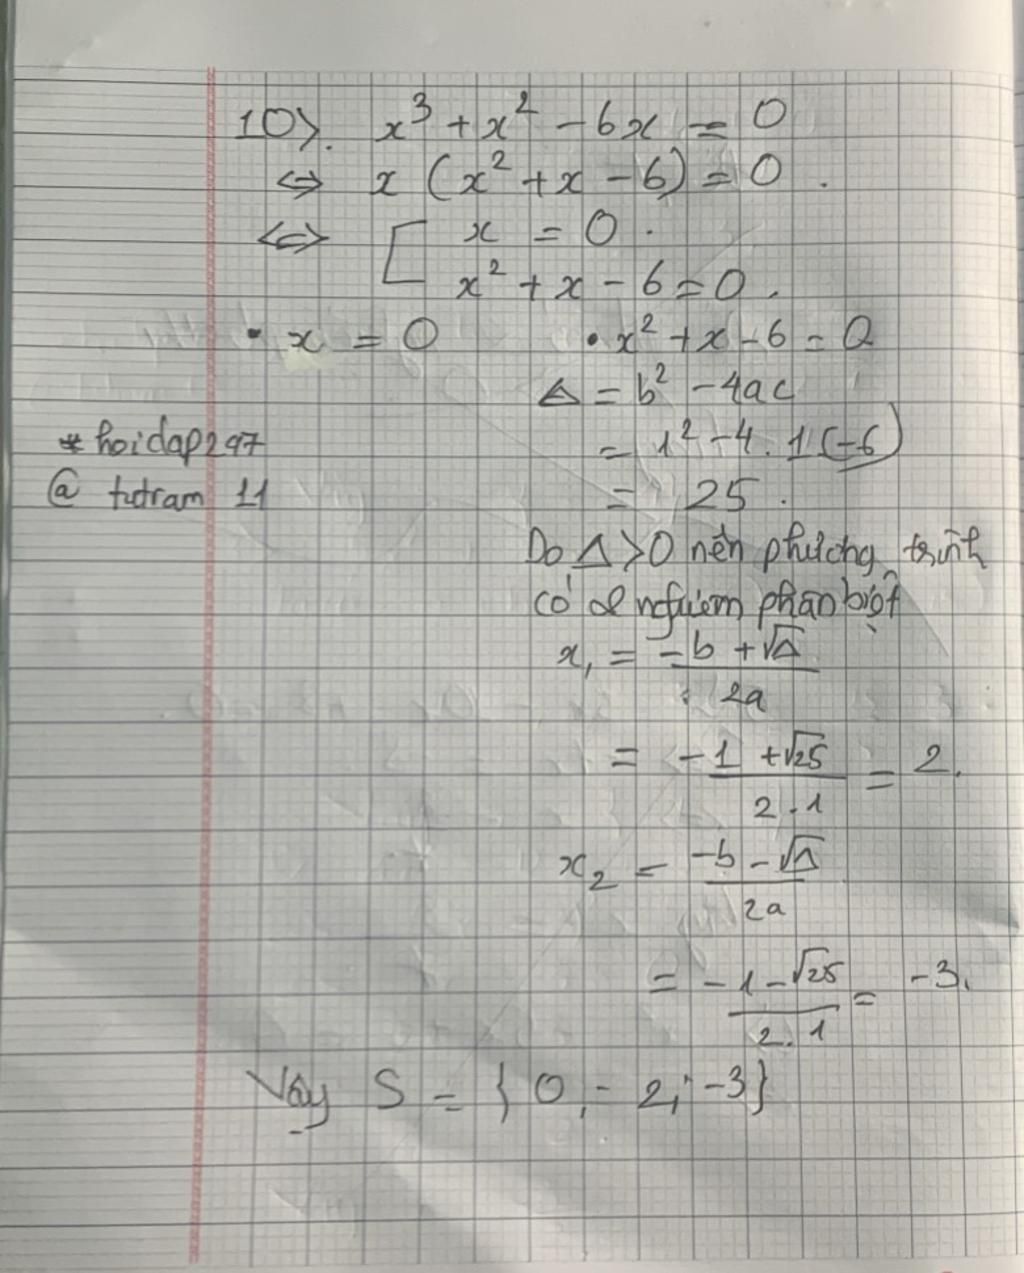 10>. x³ + x² - 6x = 0
⇔ x (x² + x - 6) = 0.
⇔ [ x = 0.
x² + x - 6 = 0.
• x = 0 • x² + x - 6 = 0
Δ = b² - 4ac
* hoidap247 = 1² - 4. 1 (-6)
@ tutram 11 = 25.
Do Δ > 0 nên phương trình
có 2 nghiệm phân biệt
x₁ = (-b + √Δ) / 2a
= (-1 + √25) / 2.1 = 2.
x₂ = (-b - √Δ) / 2a
= (-1 - √25) / 2.1 = -3.
Vậy S = {0; 2; -3}